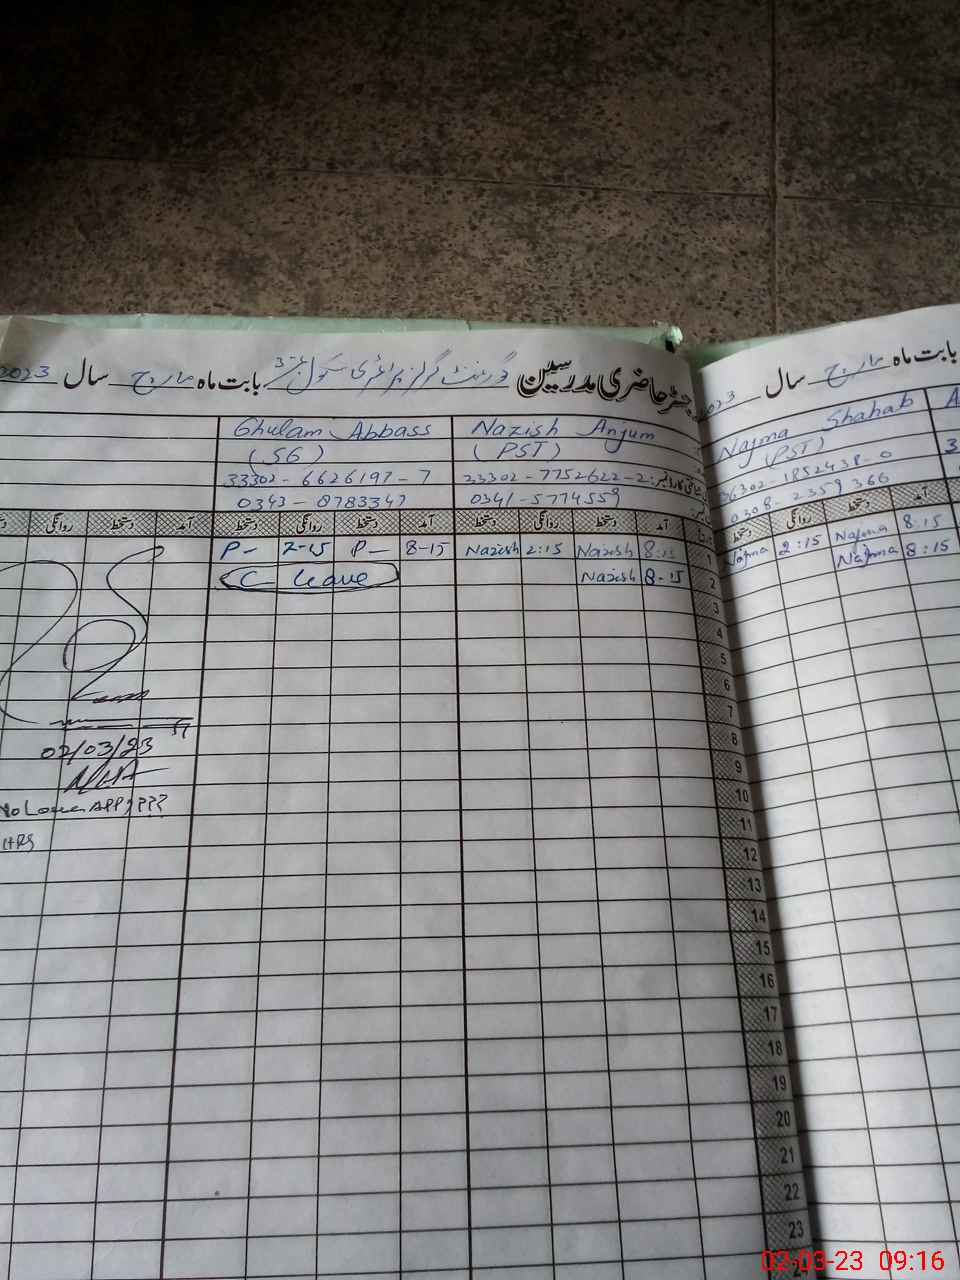 رجسٹر حاضری مدرسین گورنمنٹ گرلز پرائمری سکول بابت ماہ مارچ سال 2023
Ghulam Abbass Nazish Anjum
(SG) (PST)
33302-6626197-7 33302-7752622-2
0343-8783347 0341-5774559
آمد دستخط روانگی دستخط آمد دستخط روانگی دستخط آمد دستخط روانگی
P- 2-15 P- 8-15 Nazish 2:15 Nazish 8:15 1
C- leave Nazish 8-15 2
3
4
5
6
7
8
9
10
11
12
13
14
15
16
17
18
19
20
21
22
23
02/03/23
APP ????
HRS
بابت ماہ مارچ سال 2023
Najma Shahab
(PST)
36302-1852438-0
0308-2359366
آمد دستخط روانگی دستخط
Najma 2:15 Najma 8:15
Najma 8:15
02-03-23 09:16